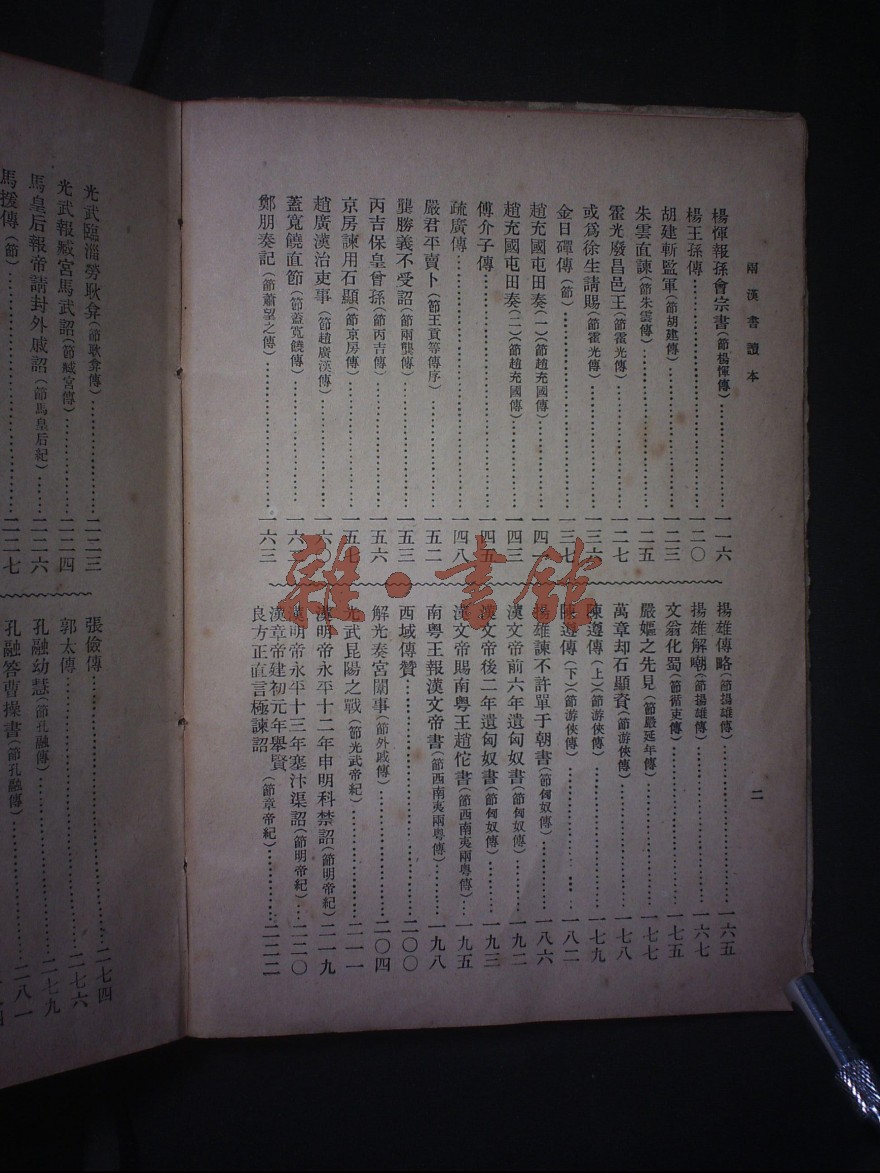 兩漢書讀本
二
楊惲報孫會宗書(節楊惲傳)⋯⋯一一六
楊王孫傳⋯⋯一二〇
胡建斬監軍(節胡建傳)⋯⋯一二三
朱雲直諫(節朱雲傳)⋯⋯一二五
霍光廢昌邑王(節霍光傳)⋯⋯一二七
或爲徐生請賜(節霍光傳)⋯⋯一三六
金日磾傳(節)⋯⋯一三七
趙充國屯田奏(一)(節趙充國傳)⋯⋯一四一
趙充國屯田奏(二)(節趙充國傳)⋯⋯一四三
傅介子傳⋯⋯一四五
疏廣傳⋯⋯一四八
嚴君平賣卜(節王貢等傳序)⋯⋯一五二
龔勝義不受詔(節兩龔傳)⋯⋯一五三
丙吉保皇曾孫(節丙吉傳)⋯⋯一五六
京房諫用石顯(節京房傳)⋯⋯一五七
趙廣漢治吏事(節趙廣漢傳)⋯⋯一六
蓋寬饒直節(節蓋寬饒傳)⋯⋯一六
鄭朋奏記(節蕭望之傳)⋯⋯一六三
揚雄傳略(節揚雄傳)⋯⋯一六五
揚雄解嘲(節揚雄傳)⋯⋯一六七
文翁化蜀(節循吏傳)⋯⋯一七五
嚴嫗之先見(節嚴延年傳)⋯⋯一七七
萬章却石顯資(節游俠傳)⋯⋯一七八
陳遵傳(上)(節游俠傳)⋯⋯一七九
陳遵傳(下)(節游俠傳)⋯⋯一八二
揚雄諫不許單于朝書(節匈奴傳)⋯⋯一八六
漢文帝前六年遺匈奴書(節匈奴傳)⋯⋯一九二
漢文帝後二年遺匈奴書(節匈奴傳)⋯⋯一九三
漢文帝賜南粤王趙佗書(節西南夷兩粤傳)⋯⋯一九五
南粤王報漢文帝書(節西南夷兩粤傳)⋯⋯一九八
西域傳贊⋯⋯二〇〇
解光奏宮闈事(節外戚傳)⋯⋯二〇四
光武昆陽之戰(節光武帝紀)⋯⋯二一一
漢明帝永平十二年申明科禁詔(節明帝紀)⋯⋯二一九
漢明帝永平十三年塞汴渠詔(節明帝紀)⋯⋯二二〇
漢章帝建初元年舉賢
良方正直言極諫詔(節章帝紀)⋯⋯二二二
光武臨淄勞耿弇(節耿弇傳)⋯⋯二二三
光武報臧宮馬武詔(節臧宮傳)⋯⋯二二四
馬皇后報帝請封外戚詔(節馬皇后紀)⋯⋯二二六
馬援傳(節)⋯⋯二二七
張儉傳⋯⋯二七四
郭太傳⋯⋯二七六
孔融幼慧(節孔融傳)⋯⋯二七九
孔融答曹操書(節孔融傳)⋯⋯二八一
雜·書館